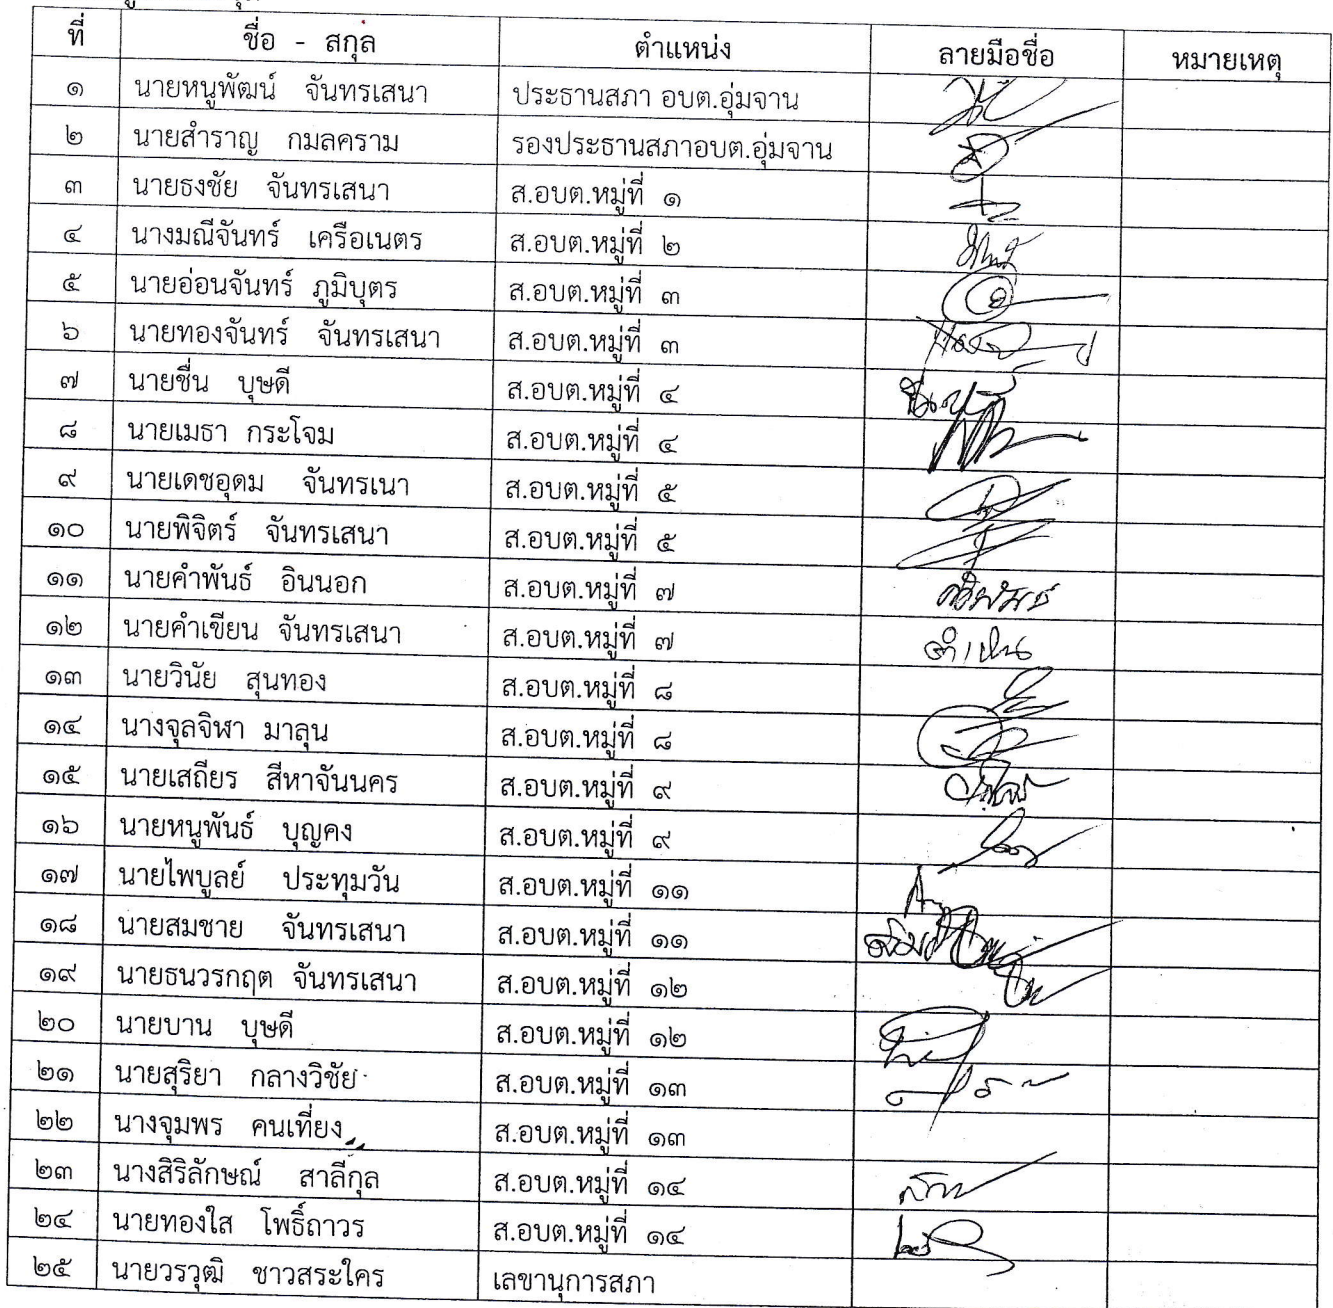 ที่ ชื่อ - สกุล ตำแหน่ง ลายมือชื่อ หมายเหตุ
๑ นายหนูพัฒน์ จันทรเสนา ประธานสภา อบต.อุ่มจาน
๒ นายสำราญ กมลคราม รองประธานสภาอบต.อุ่มจาน
๓ นายธงชัย จันทรเสนา ส.อบต.หมู่ที่ ๑
๔ นางมณีจันทร์ เครือเนตร ส.อบต.หมู่ที่ ๒
๕ นายอ่อนจันทร์ ภูมิบุตร ส.อบต.หมู่ที่ ๓
๖ นายทองจันทร์ จันทรเสนา ส.อบต.หมู่ที่ ๓
๗ นายชื่น บุษดี ส.อบต.หมู่ที่ ๔
๘ นายเมธา กระโจม ส.อบต.หมู่ที่ ๔
๙ นายเดชอุดม จันทรเนา ส.อบต.หมู่ที่ ๕
๑๐ นายพิจิตร์ จันทรเสนา ส.อบต.หมู่ที่ ๕
๑๑ นายคำพันธ์ อินนอก ส.อบต.หมู่ที่ ๗
๑๒ นายคำเขียน จันทรเสนา ส.อบต.หมู่ที่ ๗
๑๓ นายวินัย สุนทอง ส.อบต.หมู่ที่ ๘
๑๔ นางจุลจิฬา มาลุน ส.อบต.หมู่ที่ ๘
๑๕ นายเสถียร สีหาจันนคร ส.อบต.หมู่ที่ ๙
๑๖ นายหนูพันธ์ บุญคง ส.อบต.หมู่ที่ ๙
๑๗ นายไพบูลย์ ประทุมวัน ส.อบต.หมู่ที่ ๑๑
๑๘ นายสมชาย จันทรเสนา ส.อบต.หมู่ที่ ๑๑
๑๙ นายธนวรกฤต จันทรเสนา ส.อบต.หมู่ที่ ๑๒
๒๐ นายบาน บุษดี ส.อบต.หมู่ที่ ๑๒
๒๑ นายสุริยา กลางวิชัย ส.อบต.หมู่ที่ ๑๓
๒๒ นางจุมพร คนเที่ยง ส.อบต.หมู่ที่ ๑๓
๒๓ นางสิริลักษณ์ สาลีกุล ส.อบต.หมู่ที่ ๑๔
๒๔ นายทองใส โพธิ์ถาวร ส.อบต.หมู่ที่ ๑๔
๒๕ นายวรวุฒิ ชาวสระใคร เลขานุการสภา